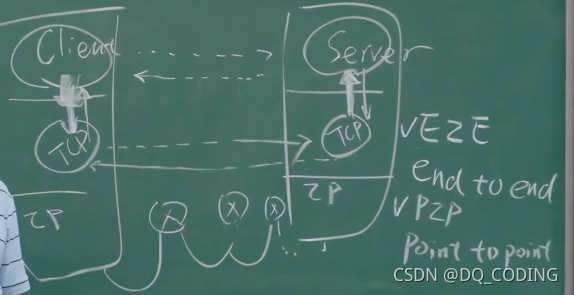 Client
Server
TCP
TCP
VE2E
end to end
IP
IP
VP2P
Point to point
X
X
X
CSDN @DQ_CODING